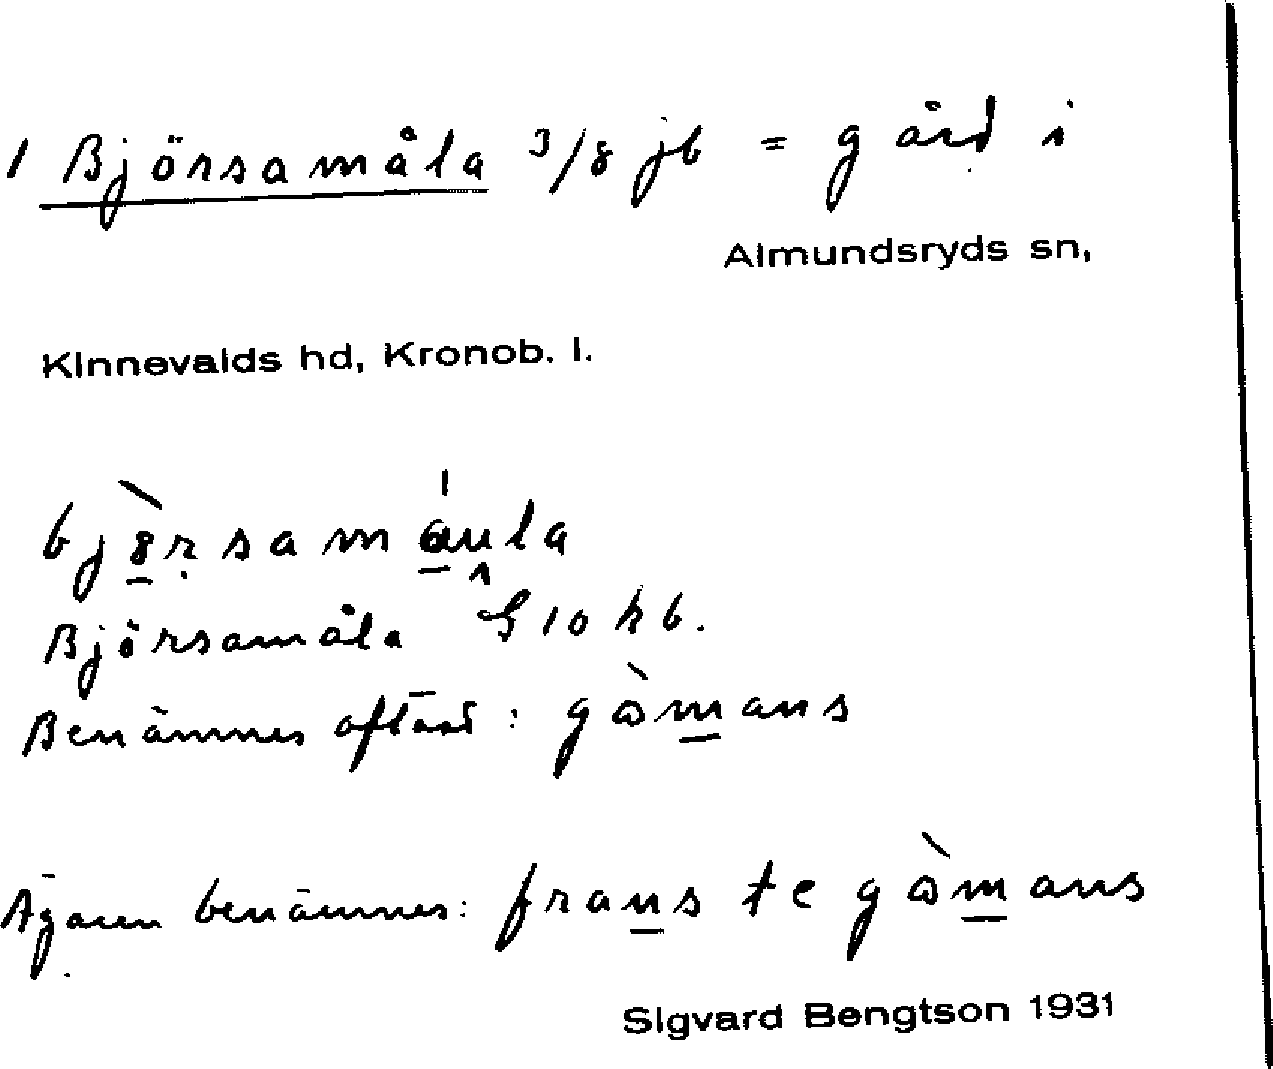 1 Björsamåla 3/8 jb = gård i
Almundsryds sn,
Kinnevalds hd, Kronob. l.
Björsamåla G 10 kb.
Benämnes oftast: gòmans
Ägaren benämnes: frans te gòmans
Sigvard Bengtson 1931